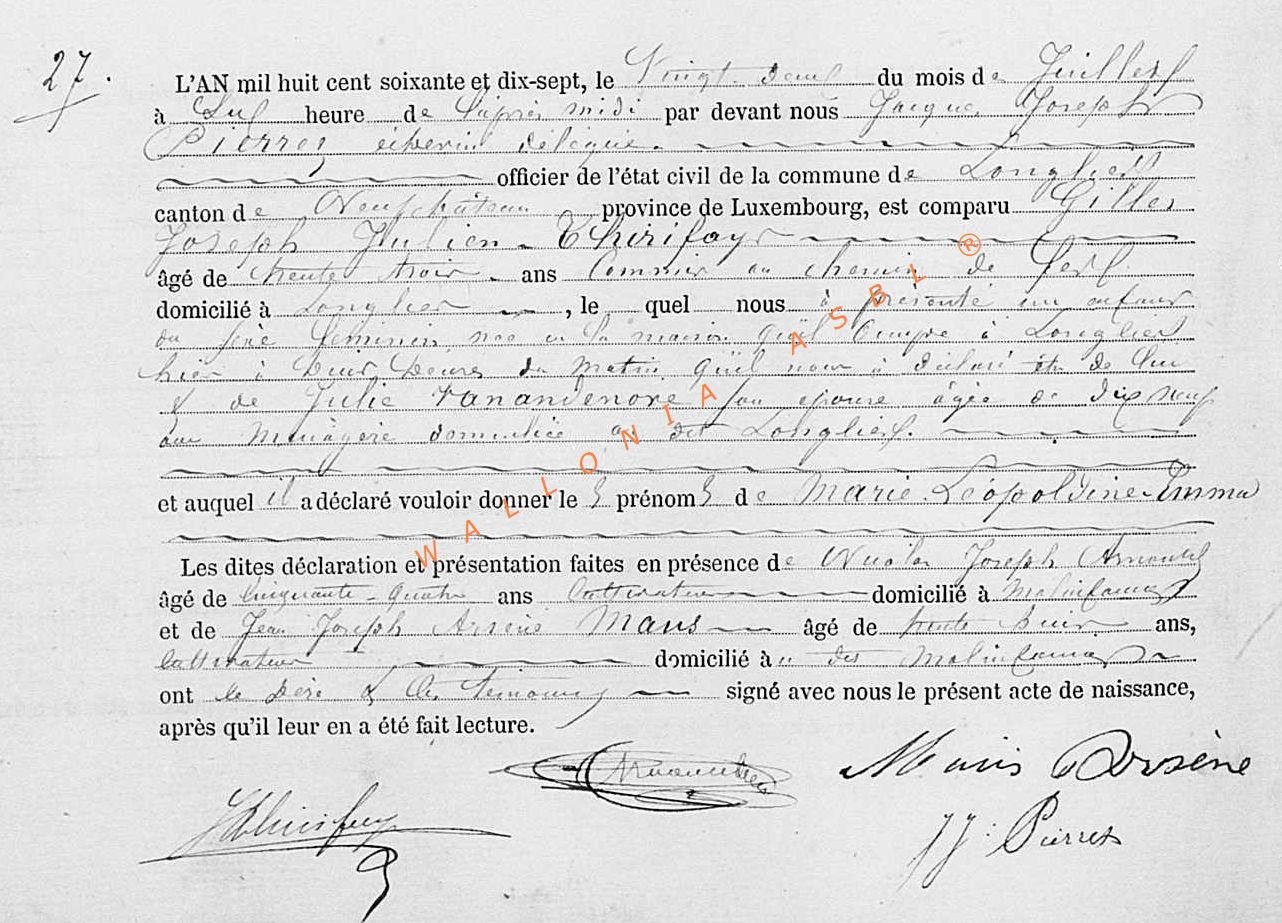 27.
L'AN mil huit cent soixante et dix-sept, le Vingt deux du mois de Juillet
à Six heure de l'après midi par devant nous Jacques Joseph
Pierret échevin délégué
officier de l'état civil de la commune de Longlier
canton de Neufchâteau province de Luxembourg, est comparu Gilles
Joseph Julien Thirifays
âgé de trente trois ans Commis au chemin de fer
domicilié à Longlier, le quel nous à présenté un enfant
du sexe féminin née en la maison qu'il occupe à Longlier
hier à deux heures du matin qu'il nous à déclaré être de lui
& de Julie Vanandenove son épouse âgée de dix neuf
ans ménagère domiciliée au dit Longlier.
et auquel il a déclaré vouloir donner les prénoms de Marie Léopoldine Emma
Les dites déclaration et présentation faites en présence de Nicolas Joseph Arnould
âgé de Cinquante quatre ans Cultivateur domicilié à Molinfaing
et de Jean Joseph Arsène Maus âgé de trente ans,
Cultivateur domicilié à dit Molinfaing
ont le père & les témoins signé avec nous le présent acte de naissance,
après qu'il leur en a été fait lecture.
Arsène
JJ. Pierret
WALLONIA ASBL ®